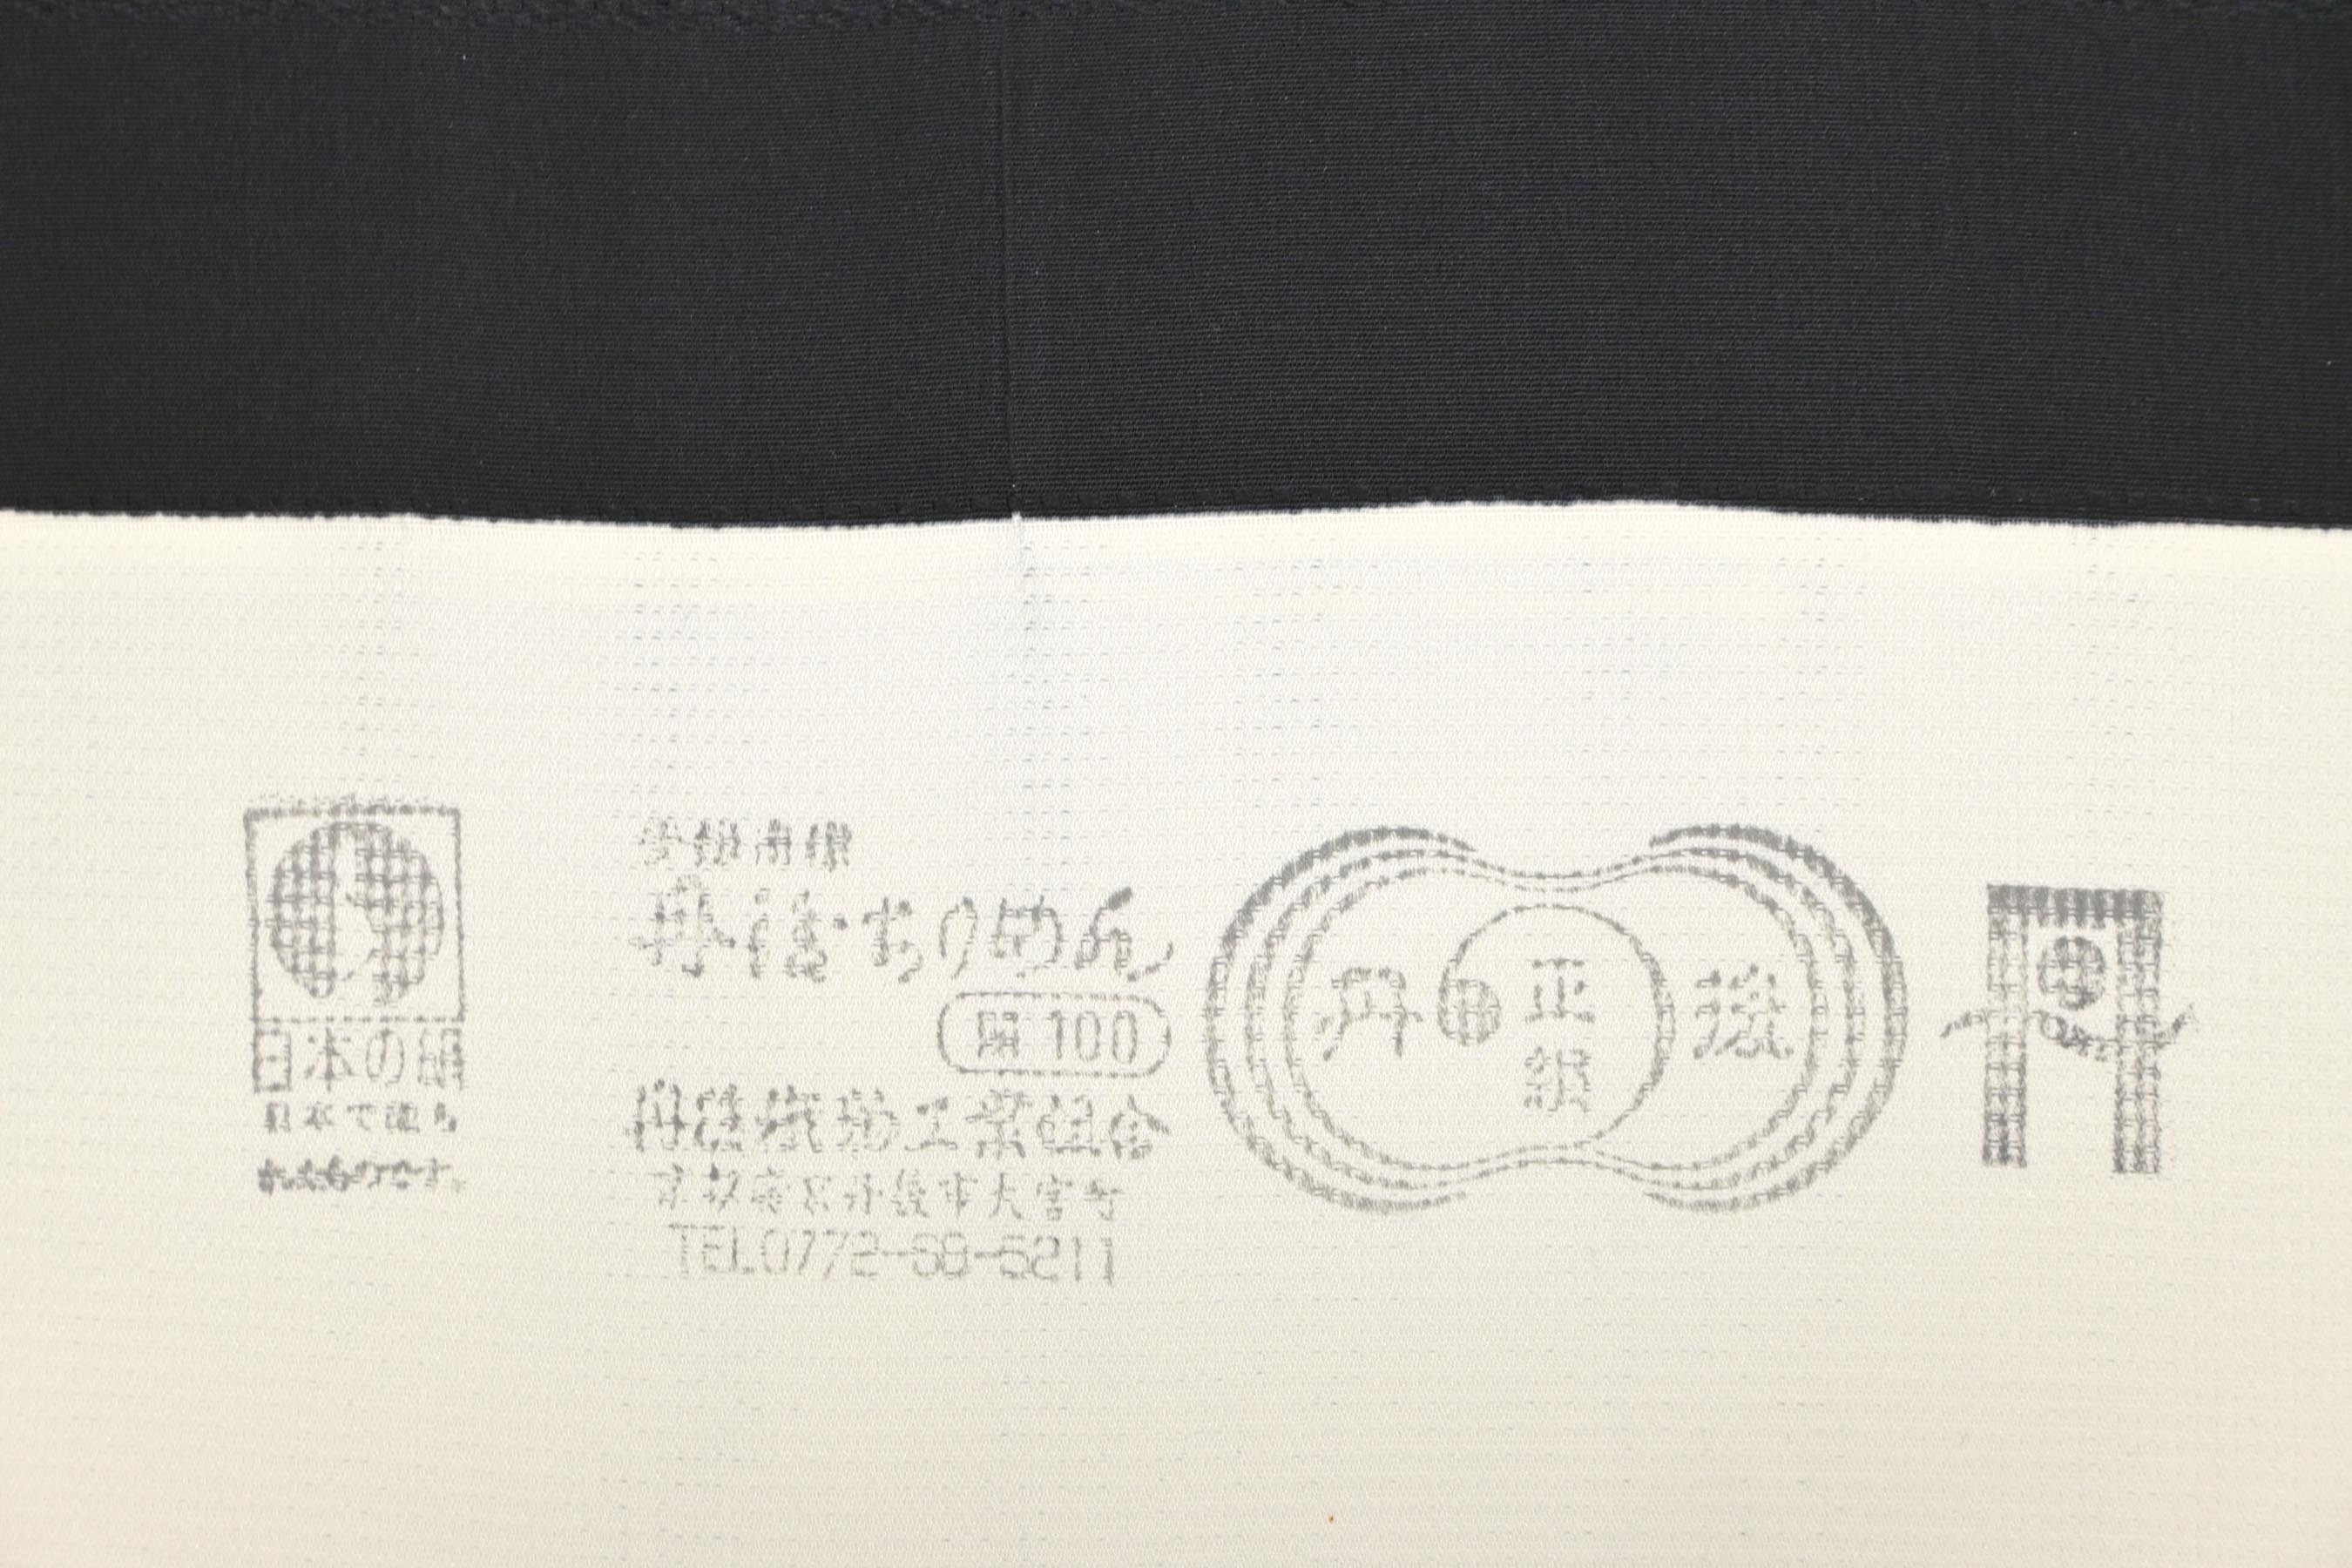 日本の絹
日本で織ら
れたものです。
丹後ちりめん
絹100
丹後織物工業組合
京都府京丹後市大宮町
TEL0772-68-5211
丹 正絹 後